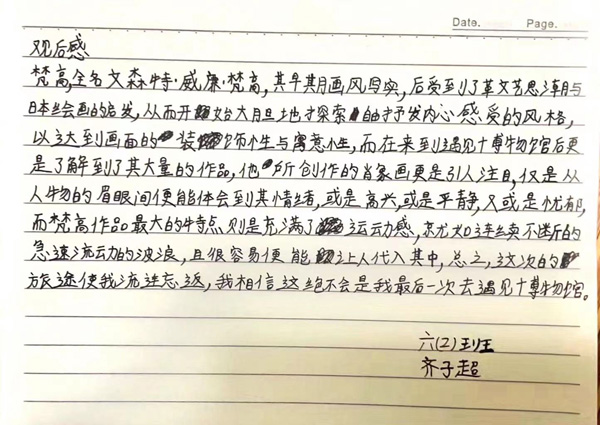 Date. Page.
观后感
梵高全名文森特·威廉·梵高，其早期画风写实，后受到了革文艺思潮与
日本绘画的启发，从而开始大胆地探索自由抒发内心感受的风格，
以达到画面的装饰性与寓意性，而在来到遇见博物馆后更
是了解到了其大量的作品，他所创作的肖象画更是引人注目，仅是从
人物的眉眼间便能体会到其情绪，或是高兴，或是平静，又或是忧郁，
而梵高作品最大的特点则是充满了运动感，犹如连续不断的
急速流动的波浪，且很容易便能让人代入其中，总之，这次的
旅途使我流连忘返，我相信这绝不会是我最后一次去遇见博物馆。
六(2)班
齐子超